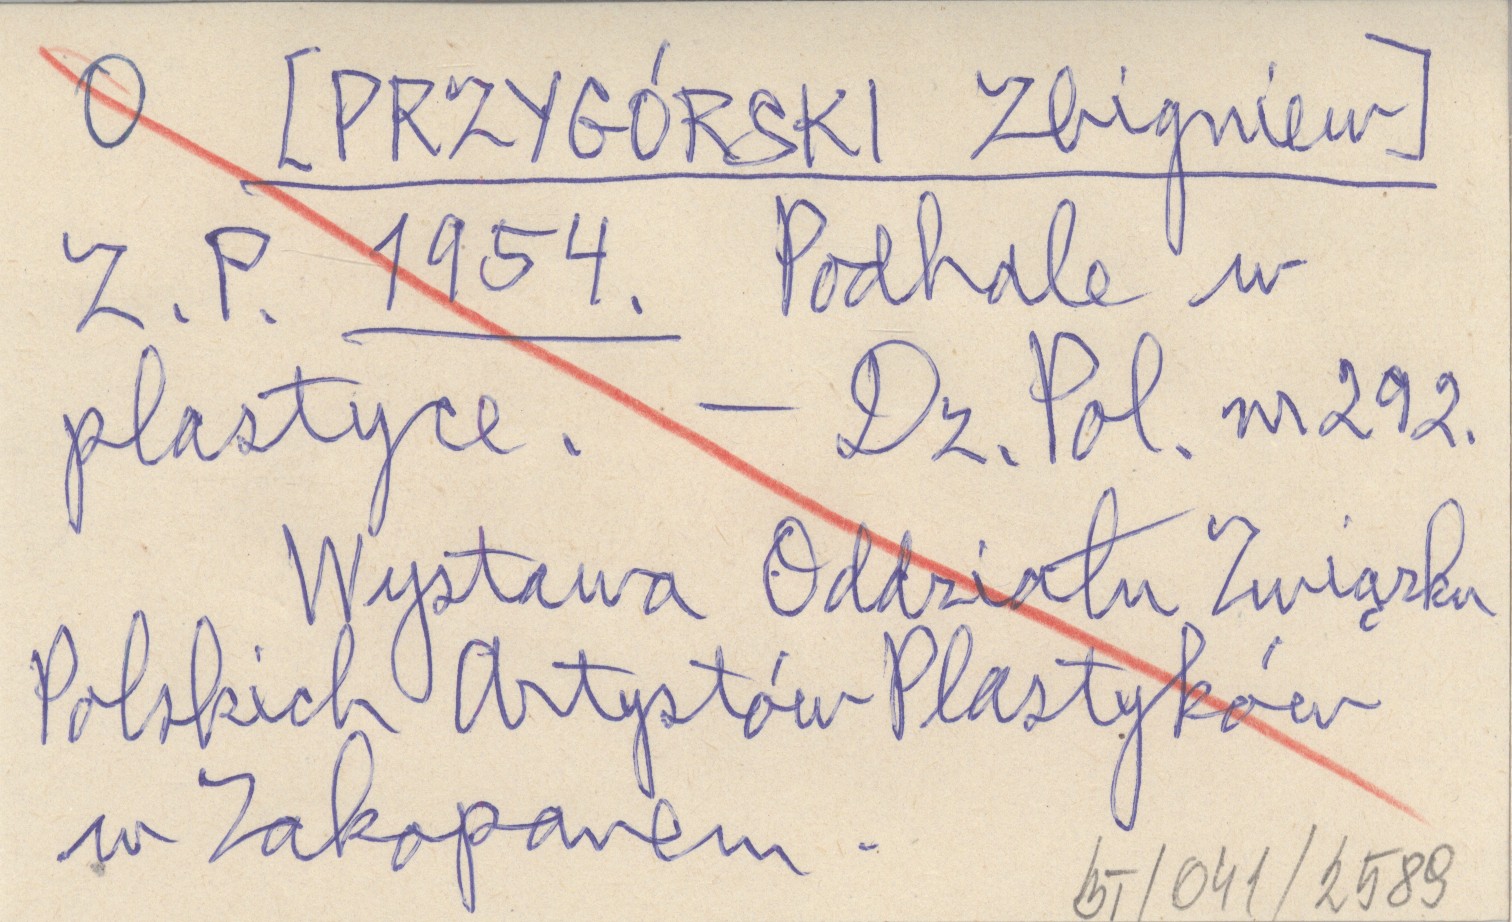 O [PRZYGÓRSKI Zbigniew]
Z.P. 1954. Podhale w
plastyce. — Dz. Pol. nr 292.
Wystawa Oddziału Związku
Polskich Artystów Plastyków
w Zakopanem.
/041/2589